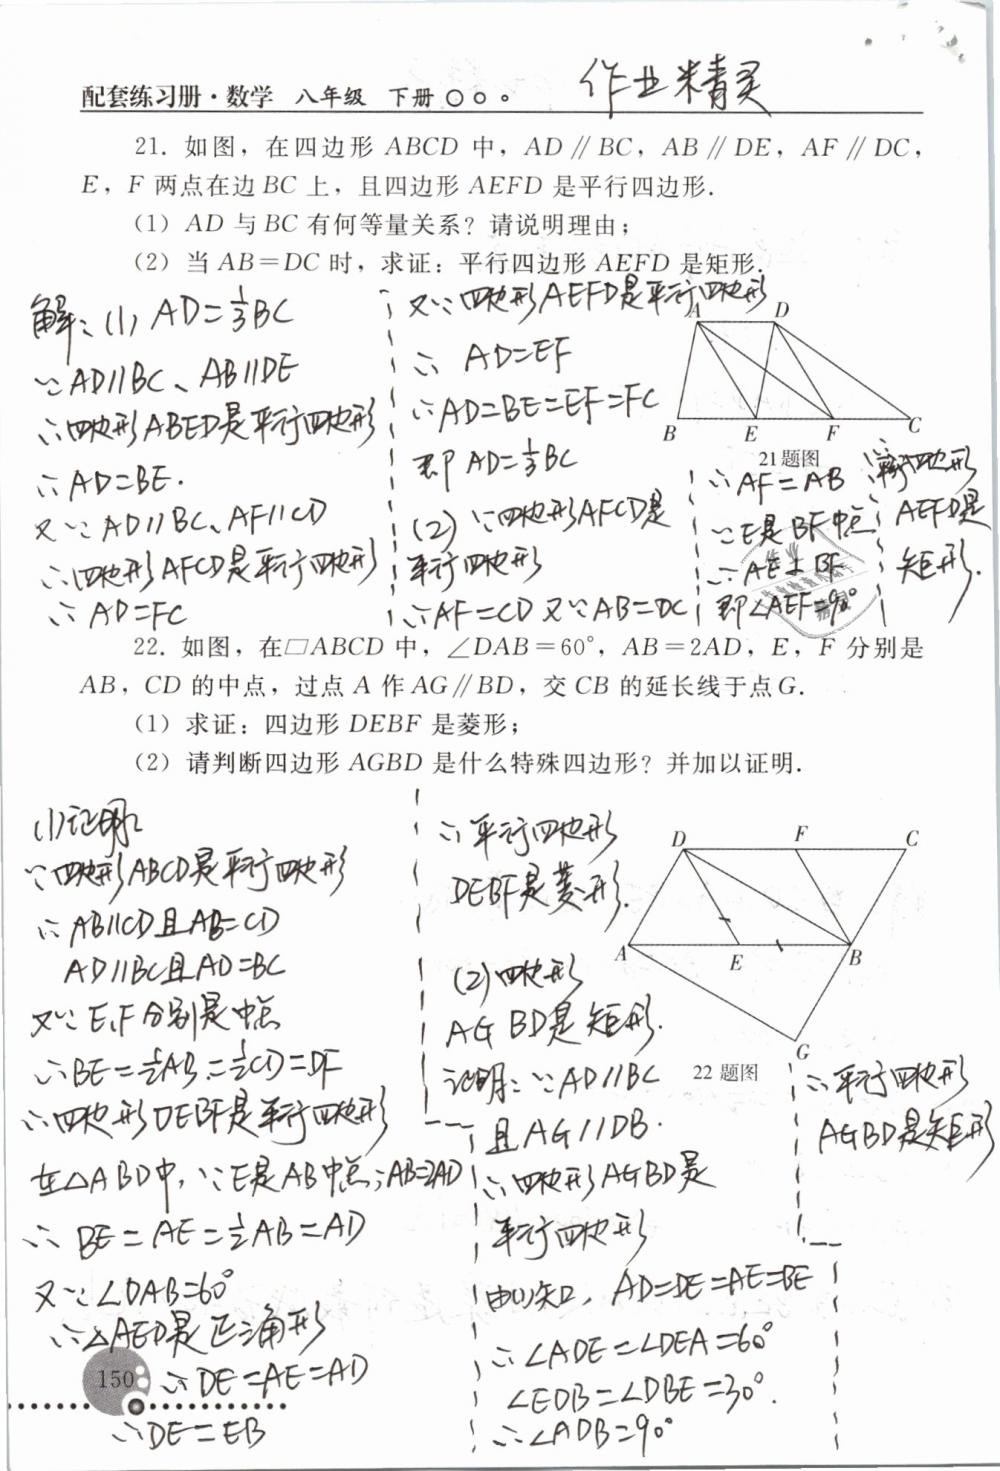 配套练习册·数学 八年级 下册
作业精灵
21. 如图，在四边形 ABCD 中，AD∥BC，AB∥DE，AF∥DC，
E，F 两点在边 BC 上，且四边形 AEFD 是平行四边形.
(1) AD 与 BC 有何等量关系？请说明理由；
(2) 当 AB=DC 时，求证：平行四边形 AEFD 是矩形.
解：(1) AD=1/3BC
∵AD∥BC、AB∥DE
∴四边形ABED是平行四边形
∴AD=BE.
又∵AD∥BC、AF∥CD
∴四边形AFCD是平行四边形
∴AD=FC
又∵四边形AEFD是平行四边形
∴AD=EF
∴AD=BE=EF=FC
即AD=1/3BC
(2) ∵四边形AFCD是
平行四边形
∴AF=CD 又∵AB=DC
A D
B E F C
21题图
∴AF=AB
∵E是BF中点
∴AE⊥BF
即∠AEF=90°
四边形
AEFD是
矩形.
22. 如图，在▱ABCD 中，∠DAB=60°，AB=2AD，E，F 分别是
AB，CD 的中点，过点 A 作 AG∥BD，交 CB 的延长线于点 G.
(1) 求证：四边形 DEBF 是菱形；
(2) 请判断四边形 AGBD 是什么特殊四边形？并加以证明.
(1)证明：
∵四边形ABCD是平行四边形
∴AB∥CD且AB=CD
AD∥BC且AD=BC
又∵E、F分别是中点
∴BE=1/2AB=1/2CD=DF
∴四边形DEBF是平行四边形
在△ABD中，∵E是AB中点；AB=2AD
∴BE=AE=1/2AB=AD
又∵∠DAB=60°
∴△AED是正三角形
∴DE=AE=AD
∴DE=EB
∴平行四边形
DEBF是菱形.
(2)四边形
AGBD是矩形.
证明：∵AD∥BC
且AG∥DB.
∴四边形AGBD是
平行四边形
由(1)知，AD=DE=AE=BE
∴∠ADE=∠DEA=60°
∠EDB=∠DBE=30°.
∴∠ADB=90°
D F C
A E B
G
22题图
∴平行四边形
AGBD是矩形
150